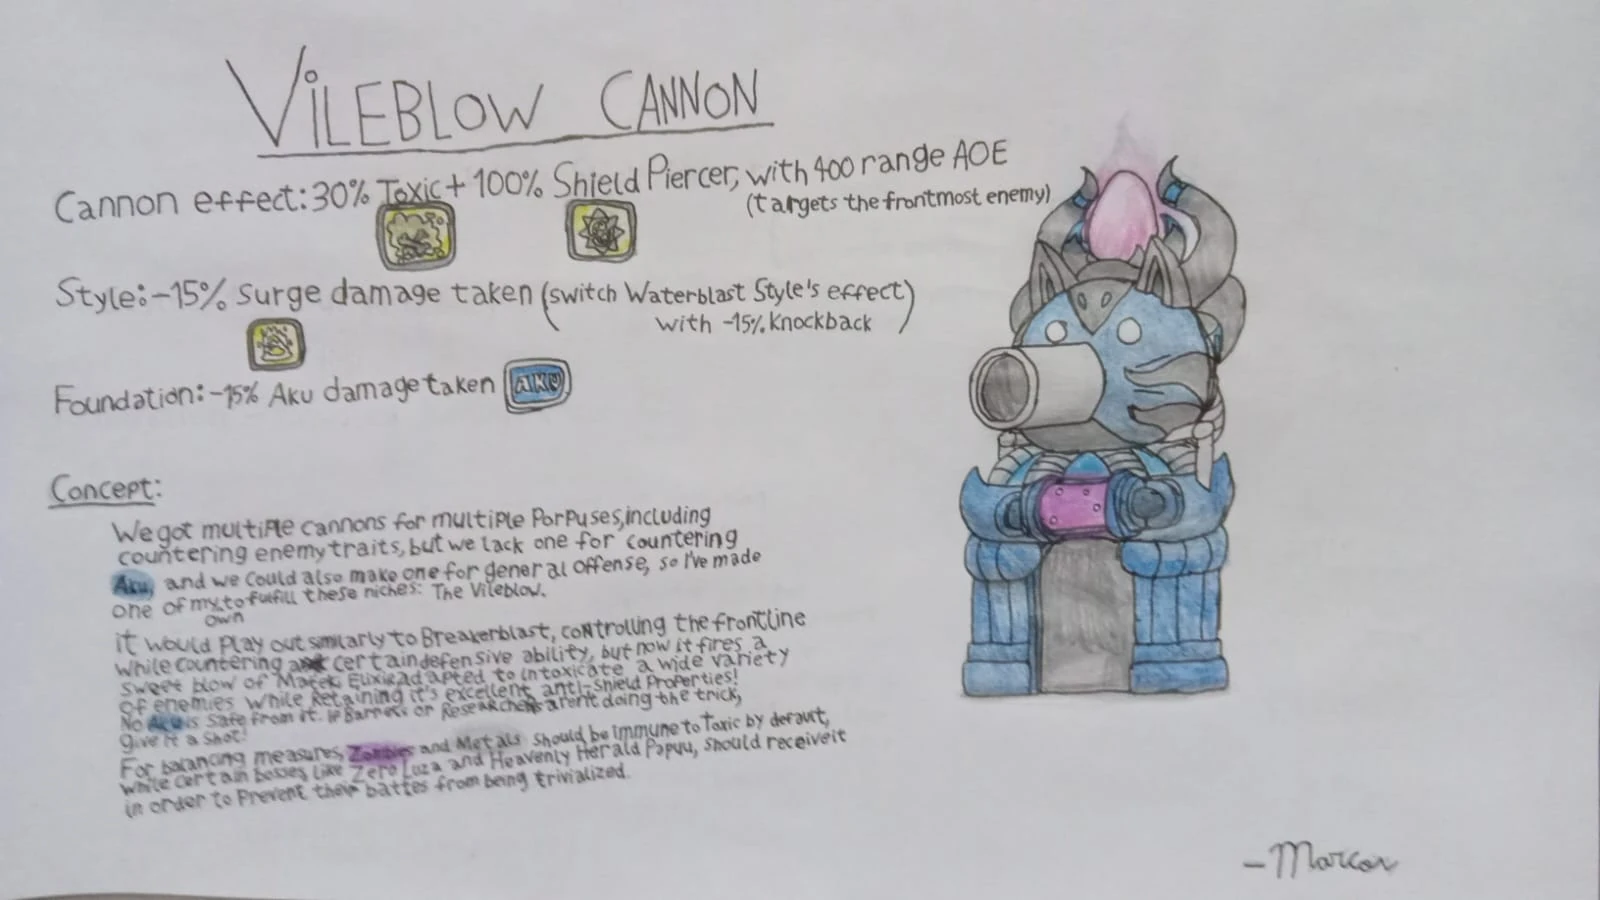 VILEBLOW CANNON
Cannon effect: 30% Toxic + 100% Shield Piercer, with 400 range AOE
(targets the frontmost enemy)
Style: -15% surge damage taken (switch Waterblast Style's effect)
with -15% Knockback
Foundation: -15% Aku damage taken AKU
Concept:
We got multiple cannons for multiple Porpuses, including
countering enemy traits, but we lack one for countering
Aku, and we could also make one for general offense, so I've made
one of my to fulfill these niches: The Vileblow.
own
it would play out similarly to Breakerblast, controlling the frontline
while countering certain defensive ability, but now it fires a
sweet blow of Elixir adapted to intoxicate a wide variety
of enemies while retaining it's excellent anti-shield Properties!
No Aku is safe from it. If Barriers or Researchers aren't doing the trick,
give it a shot!
For balancing measures, Zombies and Metals should be immune to Toxic by default,
while certain bosses, like Zero Luza and Heavenly Herald Papuu, should receive it
in order to prevent their battles from being trivialized.
- Marcon